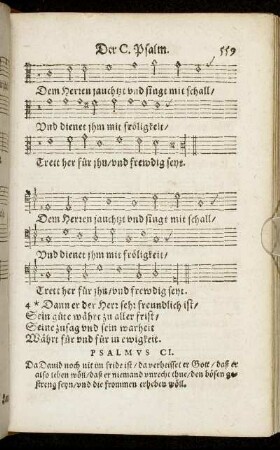 Der C. Psalm. 559
Dem Herren jauchtzt vnd singt mit schall/
Vnd dienet jhm mit fröligkeit/
Trett her für jhn/vnd frewdig seyt.
Dem Herren jauchtzt vnd singt mit schall/
Vnd dienet jhm mit fröligkeit/
Trett her für jhn/ vnd frewdig seyt.
4 * Dann er der Herr sehr freundlich ist/
Sein güte währt zu aller frist/
Seine zusag vnd sein warheit
Währt für vnd für in ewigkeit.
PSALMVS CI.
Da Dauid noch nit im fride ist/ da verheisset er Gott/ daß er
also leben wöll/ daß er niemand vnrecht thue/ den bösen ge-
streng seyn/ vnd die frommen erheben wöll.